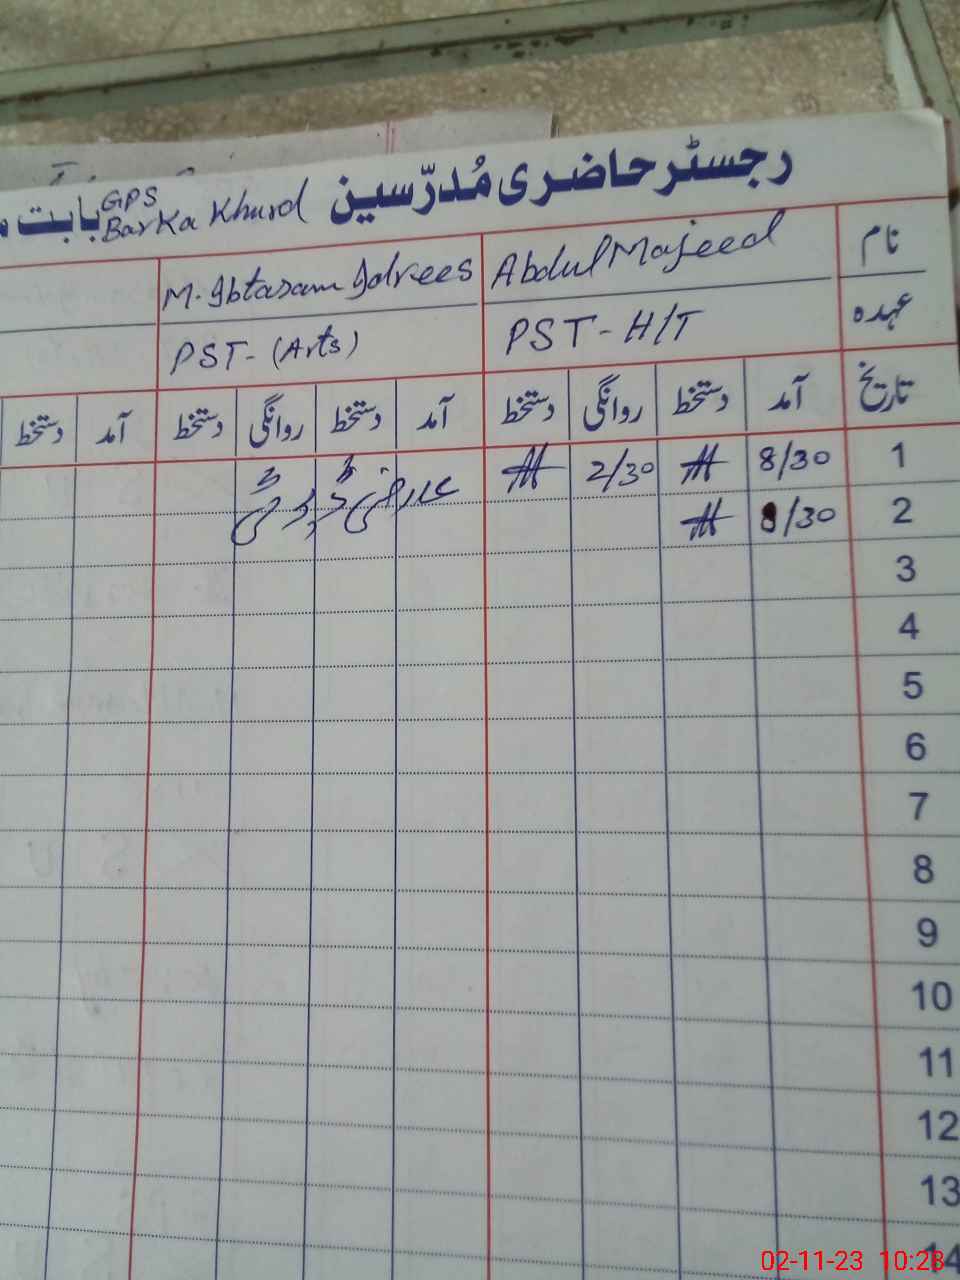 رجسٹر حاضری مُدرّسین GPS Barka Khurd بابت
نام Abdul Majeed M. Ibtasam Idrees
عہدہ PST-H/T PST-(Arts)
تاریخ آمد دستخط روانگی دستخط آمد دستخط روانگی دستخط آمد دستخط
1 8/30 2/30
2 8/30
3
4
5
6
7
8
9
10
11
12
13
14
02-11-23 10:23